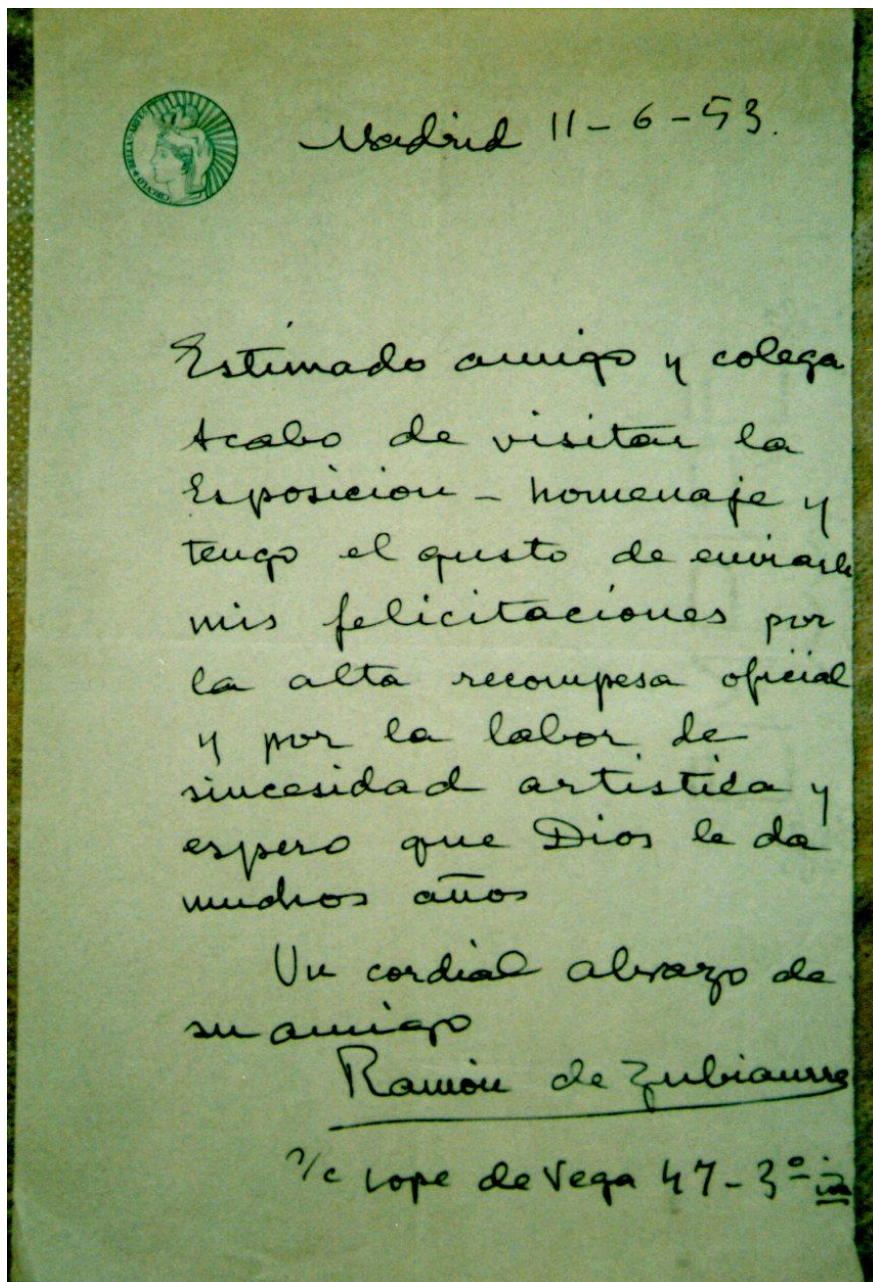 CIRCULO DE BELLAS ARTES
Madrid 11-6-53.
Estimado amigo y colega
Acabo de visitar la
Esposicion - homenaje y
tengo el gusto de enviarle
mis felicitaciones por
la alta recompesa oficial
y por la labor de
sincesidad artistica y
espero que Dios le da
muchos años
Un cordial abrazo de
su amigo
Ramón de Zubiaurre
s/c Lope de Vega 47-3º